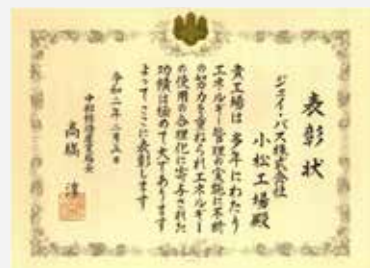 表彰状
ジェイ・バス株式会社
小松工場殿
貴工場は多年にわたり
エネルギー管理の実施に不断
の努力を重ねられエネルギー
の使用の合理化に寄与された
功績は極めて大であります
よってここに表彰します
令和二年二月五日
中部経済産業局長
高橋 淳